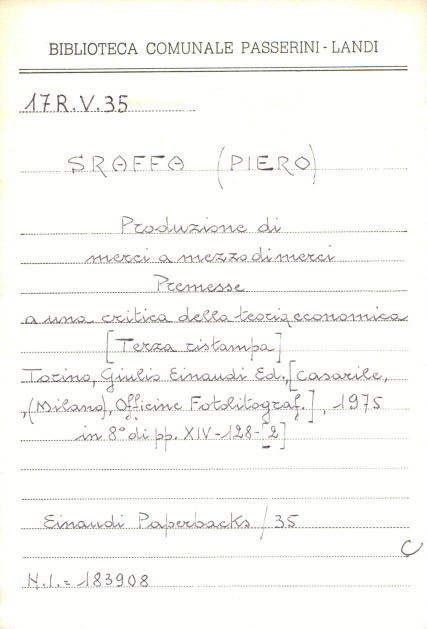 BIBLIOTECA COMUNALE PASSERINI - LANDI
17R.V.35
SRAFFA (PIERO)
Produzione di
merci a mezzo di merci
Premesse
a una critica della teoria economica
[Terza ristampa]
Torino, Giulio Einaudi Ed., [Casarile,
,(Milano), Officine Fotolitograf.], 1975
in 8° di pp. XIV-128-[2]
Einaudi Paperbacks / 35
C
N.I.= 183908